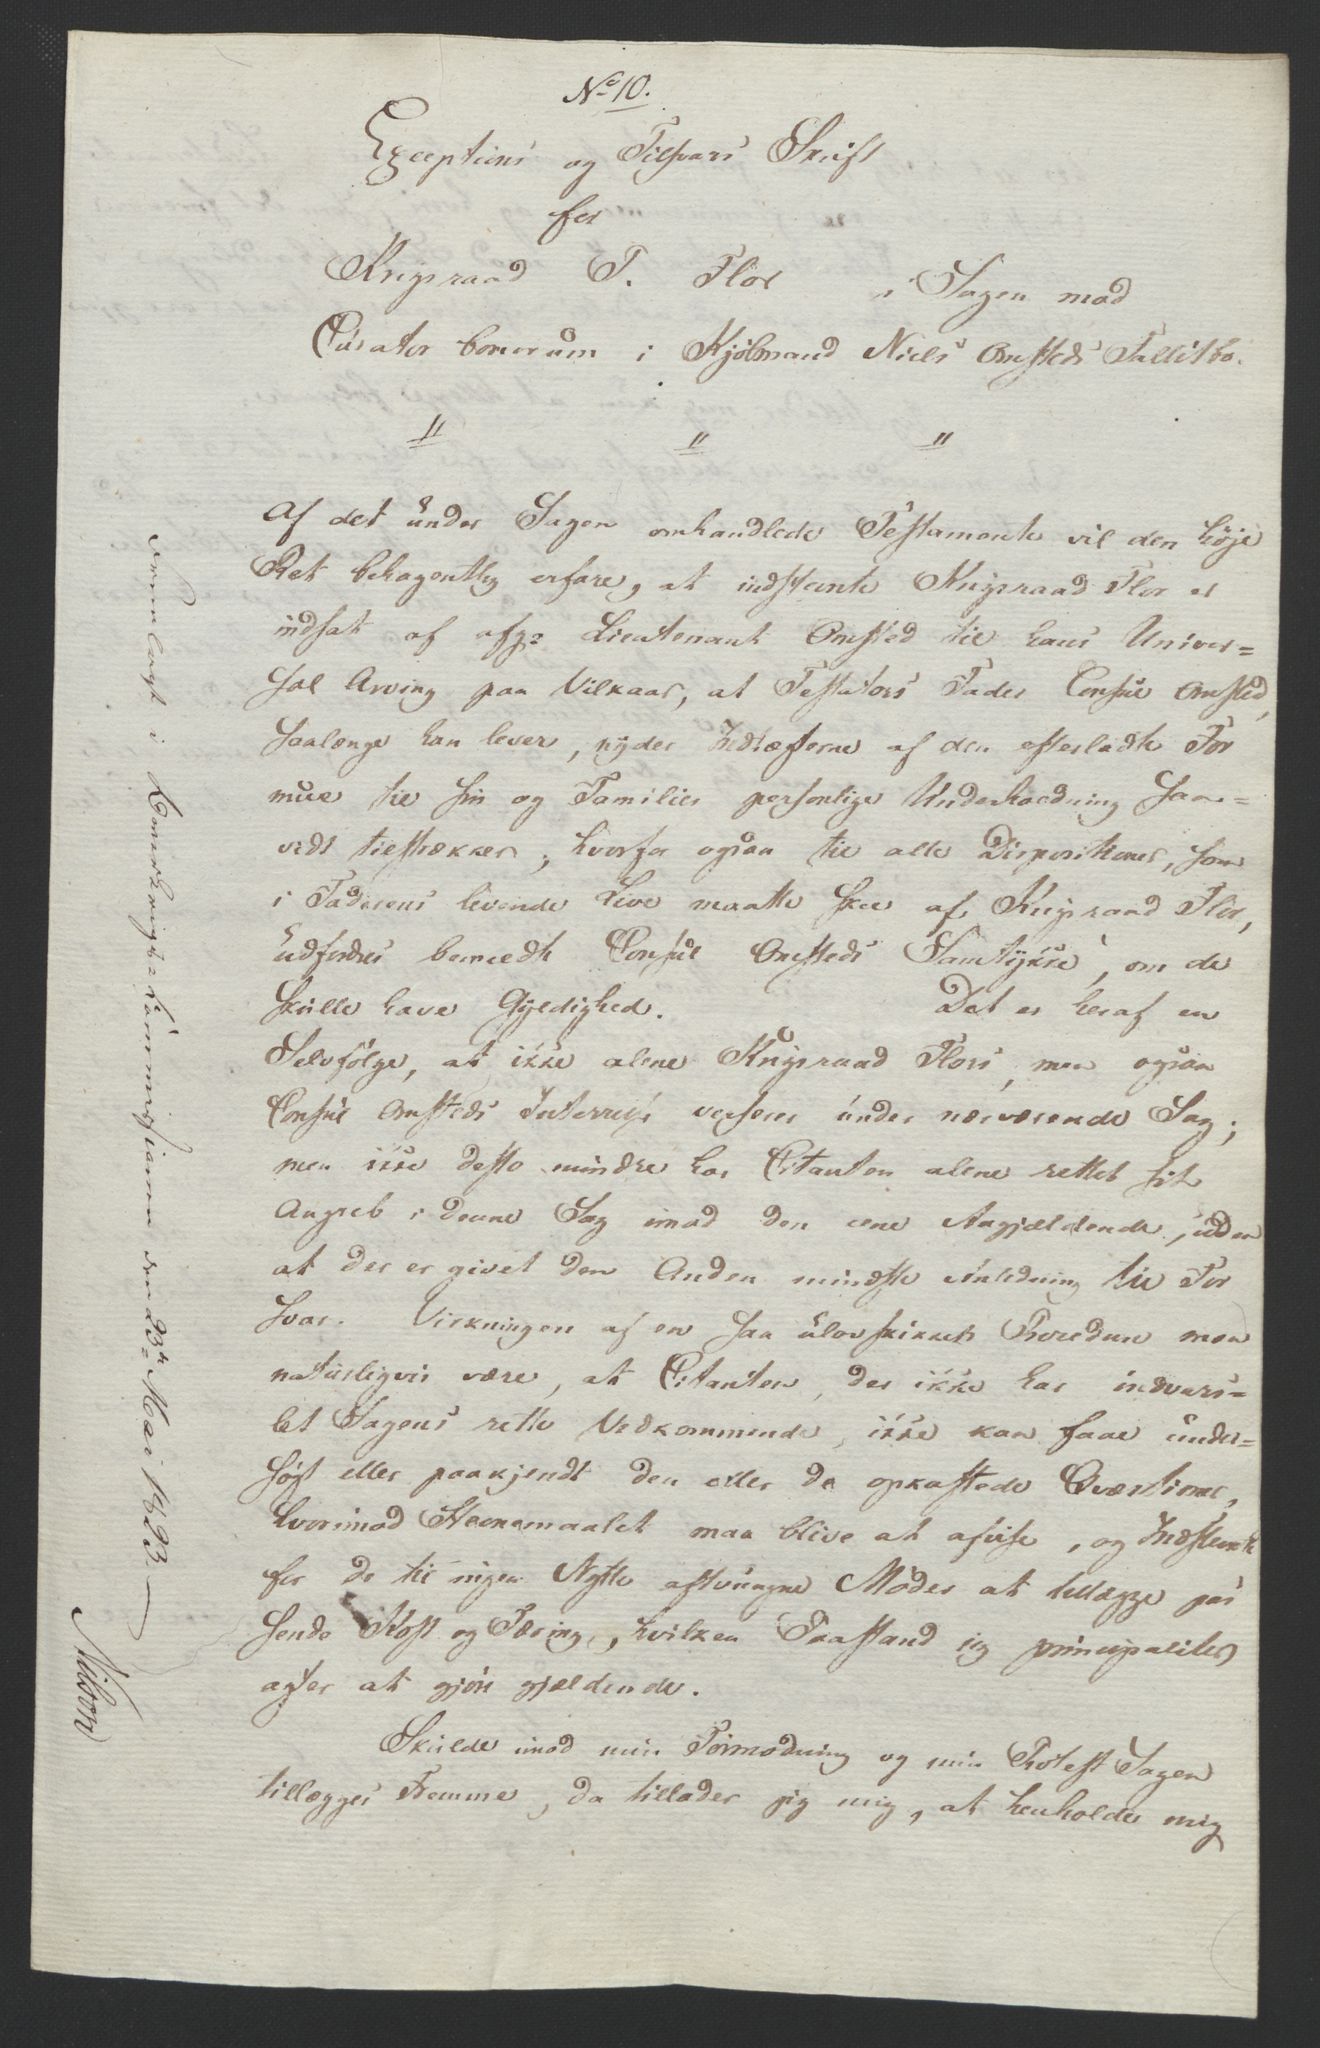 No 10.
Exceptions og Tilsvars Skrift
for
Krigsraad P. Flor i Sagen mod
Curator bonorum i Kjøbmand Niels Omsteds Fallitbo.
" " "
Af det under Sagen omhandlede Testamente vil den høje
Ret behagentlig erfare, at indstevnte Krigsraad Flor er
indsat af afg: Lieutenant Omsted til hans Univer=
sal Arving paa Vilkaar, at Testators Fader Consul Omsted,
saalænge han lever, nyder Indtægterne af den efterladte For
mue til sin og Families personlige Underholdning saa=
vidt tilstrækker, hvorfor ogsaa til alle Dispositioner, som
i Faderens levende Live maatte skee af Krigsraad Flor,
udfordres bemeldte Consul Omsteds Samtykke, om de
skulle have Gyldighed. Det er heraf en
Selvfølge, at ikke alene Krigsraad Flors, men ogsaa
Consul Omsteds Interesse verserer under nærværende Sag;
men ikke desto mindre har Citanten alene rettet sit
Angreb i denne Sag imod den ene Angjældende, uden
at der er givet den Anden mindste Anledning til For
svar. Virkningen af en saa ulovskikket Procedure maa
naturligvis være, at Citanten, der ikke har indvars=
let Sagens rette Vedkommende, ikke kan faae under=
søgt eller paakjendt den eller de opkastede Qvæstioner,
hvorimod Stevnemaalet maa blive at afvise, og Indstevnte
for de til ingen Nytte aftvungne Møder at tillægge pas
sende Kost og Tæring, hvilken Paastand jeg principaliter
agter at gjøre gjældende.
Skulde imod min Formodning og min Protest Sagen
tillægges Fremme, da tillader jeg mig, at henholde mig
fremlagt i Commissionen den 23de Mai 1823
Nilson